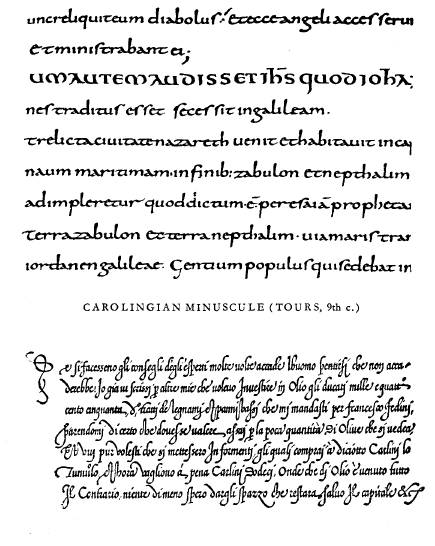 uncreliquit eum diabolus; Et ecce angeli accesserun
et ministrabant ei;
UM AUTEM AUDISSET IHS QUOD IOHA
nes traditus esset secessit in galileam.
et relicta ciuitate nazareth uenit et habitauit in ca
naum maritimam in finib; zabulon et nepthalim
ad impleretur quod dictum e per esaia propheta
Terra zabulon et terra nepthalim uia maris tran
iordanen galileae Gentium populus qui sedebat in
CAROLINGIAN MINUSCULE (TOURS, 9th c.)
Se si facesseno gli consegli degli esperti molte volte accade lhuomo pentirsi che non acca
derebbe: Io gia vi scrissi per altre mie che voleuo Inuestire in Olio gli ducati mille e quattro
cento cinquanta di legnami che mi mandasti per francesco
di certo che douesse valere assai per la poca quantita di Oliue che si vedea
volesti che si mettessero In formenti gli quali comprai a diciotto Carlini lo
Tumulo, et hora vagliono a pena Carlini Dodeci, Onde che l'Olio e venuto tutto
Il Contrario, niente di meno spero dargli spazzo che restara saluo Il capitale &c